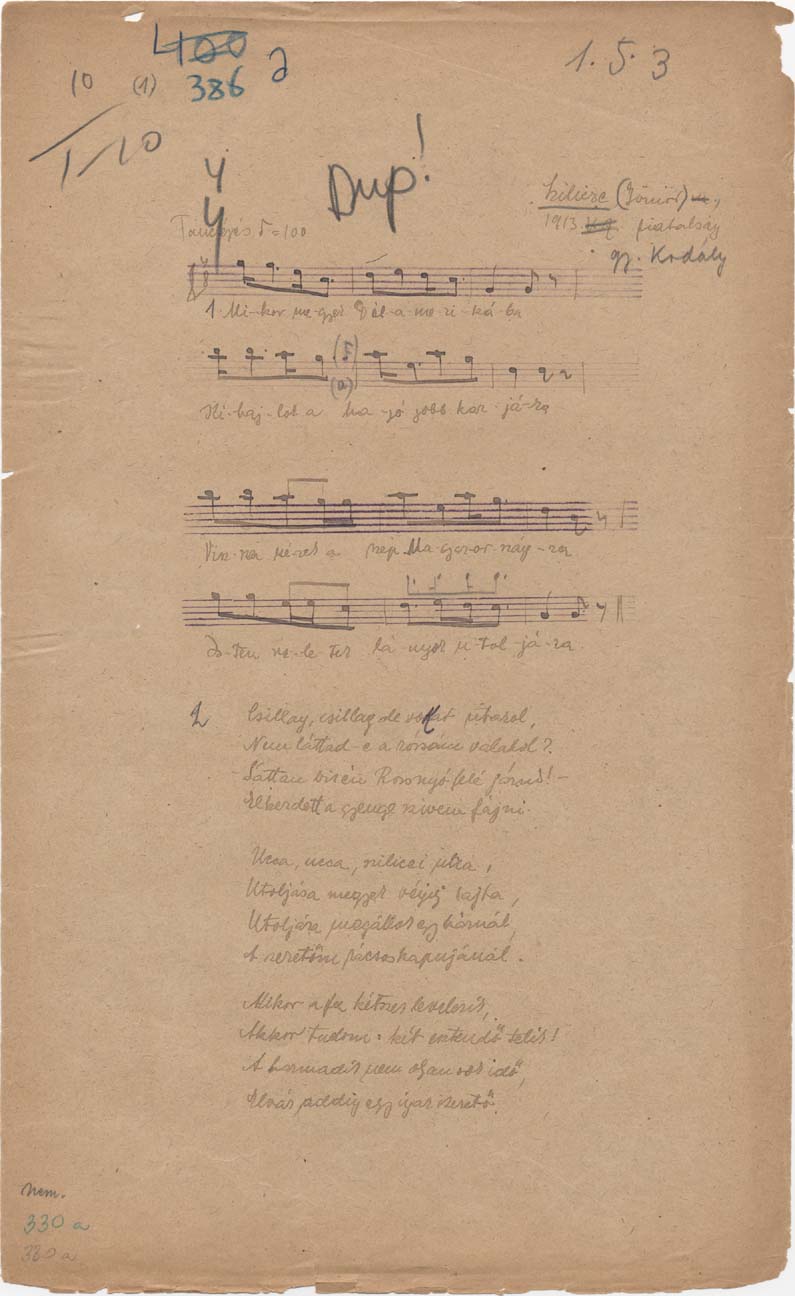 400
386 a
1. 5. 3
10 (1)
1-10
4
Dup!
4
Szilicze (Gömör)
1913. fiatalság
gy. Kodály
Tánclépés = 100
1. Mi-kor me-gyek Dél-a-me-ri-ká-ba
Ki-haj-lok a ha-jó jobb kar-já-ra
(a)
Visz-sza né-zek a szép Ma-gyar-or-szág-ra
Is-ten ve-le-tek lá-nyok u-tol-já-ra.
2 Csillag, csillag de sokat útazol,
Nem láttad-e a rózsám valahol?
- Láttam bizén Rozsnyó felé járni! -
Elkezdett a gyenge szivem fájni.
Ucca, ucca, szilicei utca,
Utoljára megyek végig rajta,
Utoljára megállok egy háznál,
A szeretőm rácsos kapujánál.
Mikor a fa kétszer levelezik,
Akkor tudom: két esztendő telik!
A harmadik nem olyan sok idő,
Elvár addig egy igaz szerető.
nem.
330 a
330 a